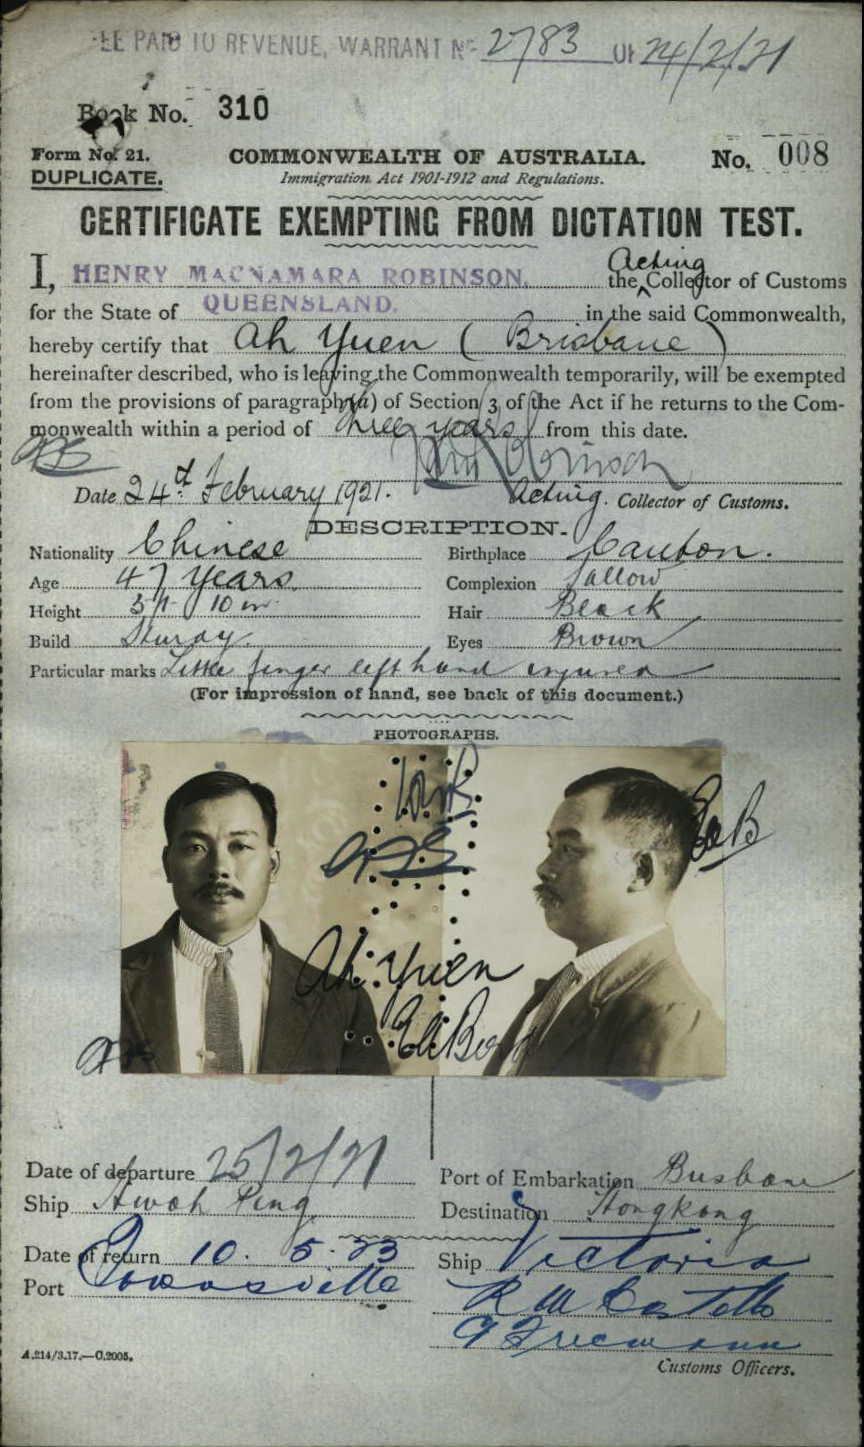 FEE PAID TO REVENUE, WARRANT No 2783 OF 24/2/21
Book No. 310
Form No. 21. COMMONWEALTH OF AUSTRALIA. No. 008
DUPLICATE. Immigration Act 1901-1912 and Regulations.
CERTIFICATE EXEMPTING FROM DICTATION TEST.
I, HENRY MACNAMARA ROBINSON, the Acting Collector of Customs
for the State of QUEENSLAND. in the said Commonwealth,
hereby certify that Ah Yuen (Brisbane)
hereinafter described, who is leaving the Commonwealth temporarily, will be exempted
from the provisions of paragraph (a) of Section 3 of the Act if he returns to the Com-
monwealth within a period of three years from this date.
Date 24th February 1921. Acting Collector of Customs.
DESCRIPTION.
Nationality Chinese Birthplace Canton.
Age 47 years Complexion Sallow
Height 5ft 10 in Hair Black
Build Sturdy. Eyes Brown
Particular marks Little finger left hand injured
(For impression of hand, see back of this document.)
PHOTOGRAPHS.
Ah Yuen
Date of departure 25/2/21 Port of Embarkation Brisbane
Ship Hwah Ping Destination Hongkong
Date of return 10. 5. 23 Ship Victoria
Port Townsville R W Costello
Customs Officers.
A.214/3.17.—C.2005.